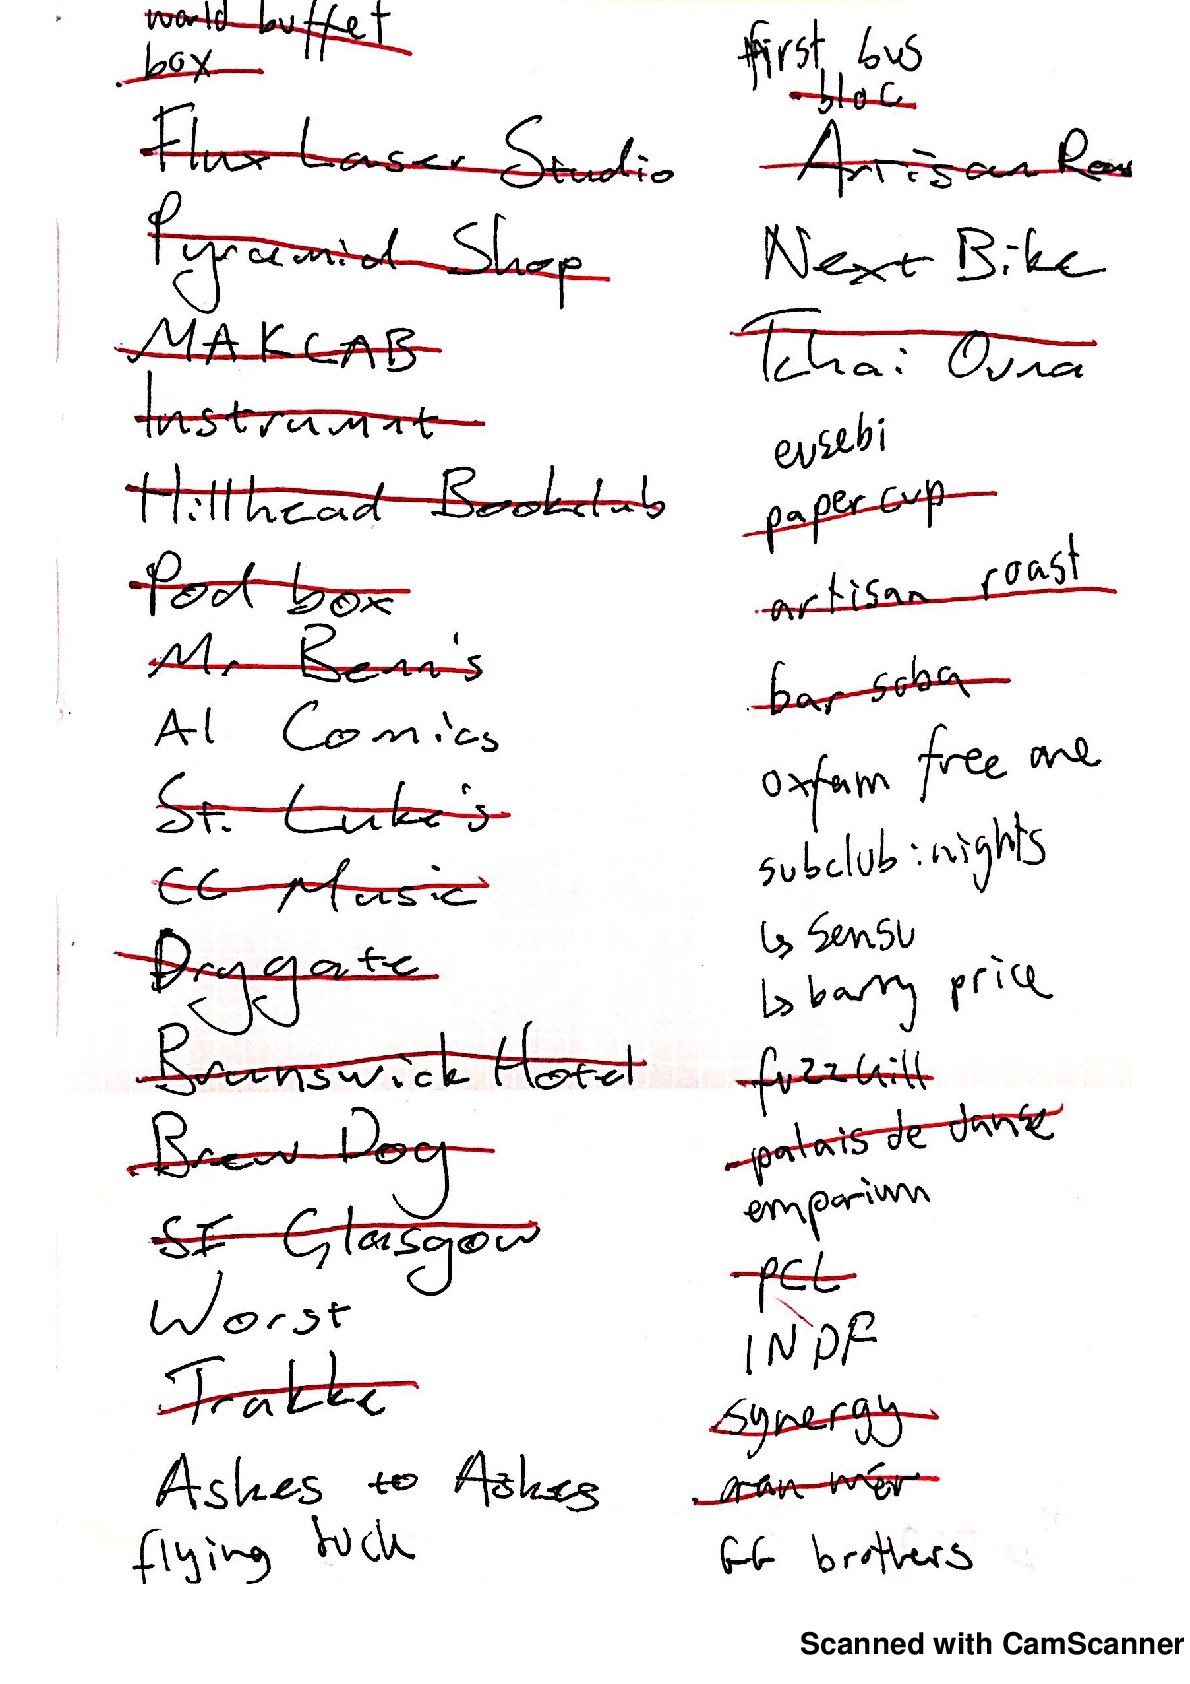 world buffet
box
Flux Laser Studio
Pyramid Shop
MAKLAB
Instrumnt
Hillhead Bookclub
Pod box
Mr Benn's
A1 Comics
St. Luke's
CC Music
Drygate
Brunswick Hotel
Brew Dog
SE Glasgow
Worst
Trakke
Ashes to Ashes
flying
first bus
bloc
Artisan
Next Bike
Tchai Ovna
eusebi
papercup
artisan roast
bar soba
oxfam free one
subclub: nights
↳ sensu
↳ barry price
fuzzkill
palais de danse
emporium
PCL
INDF
synergy
aran mór
GG brothers
Scanned with CamScanner